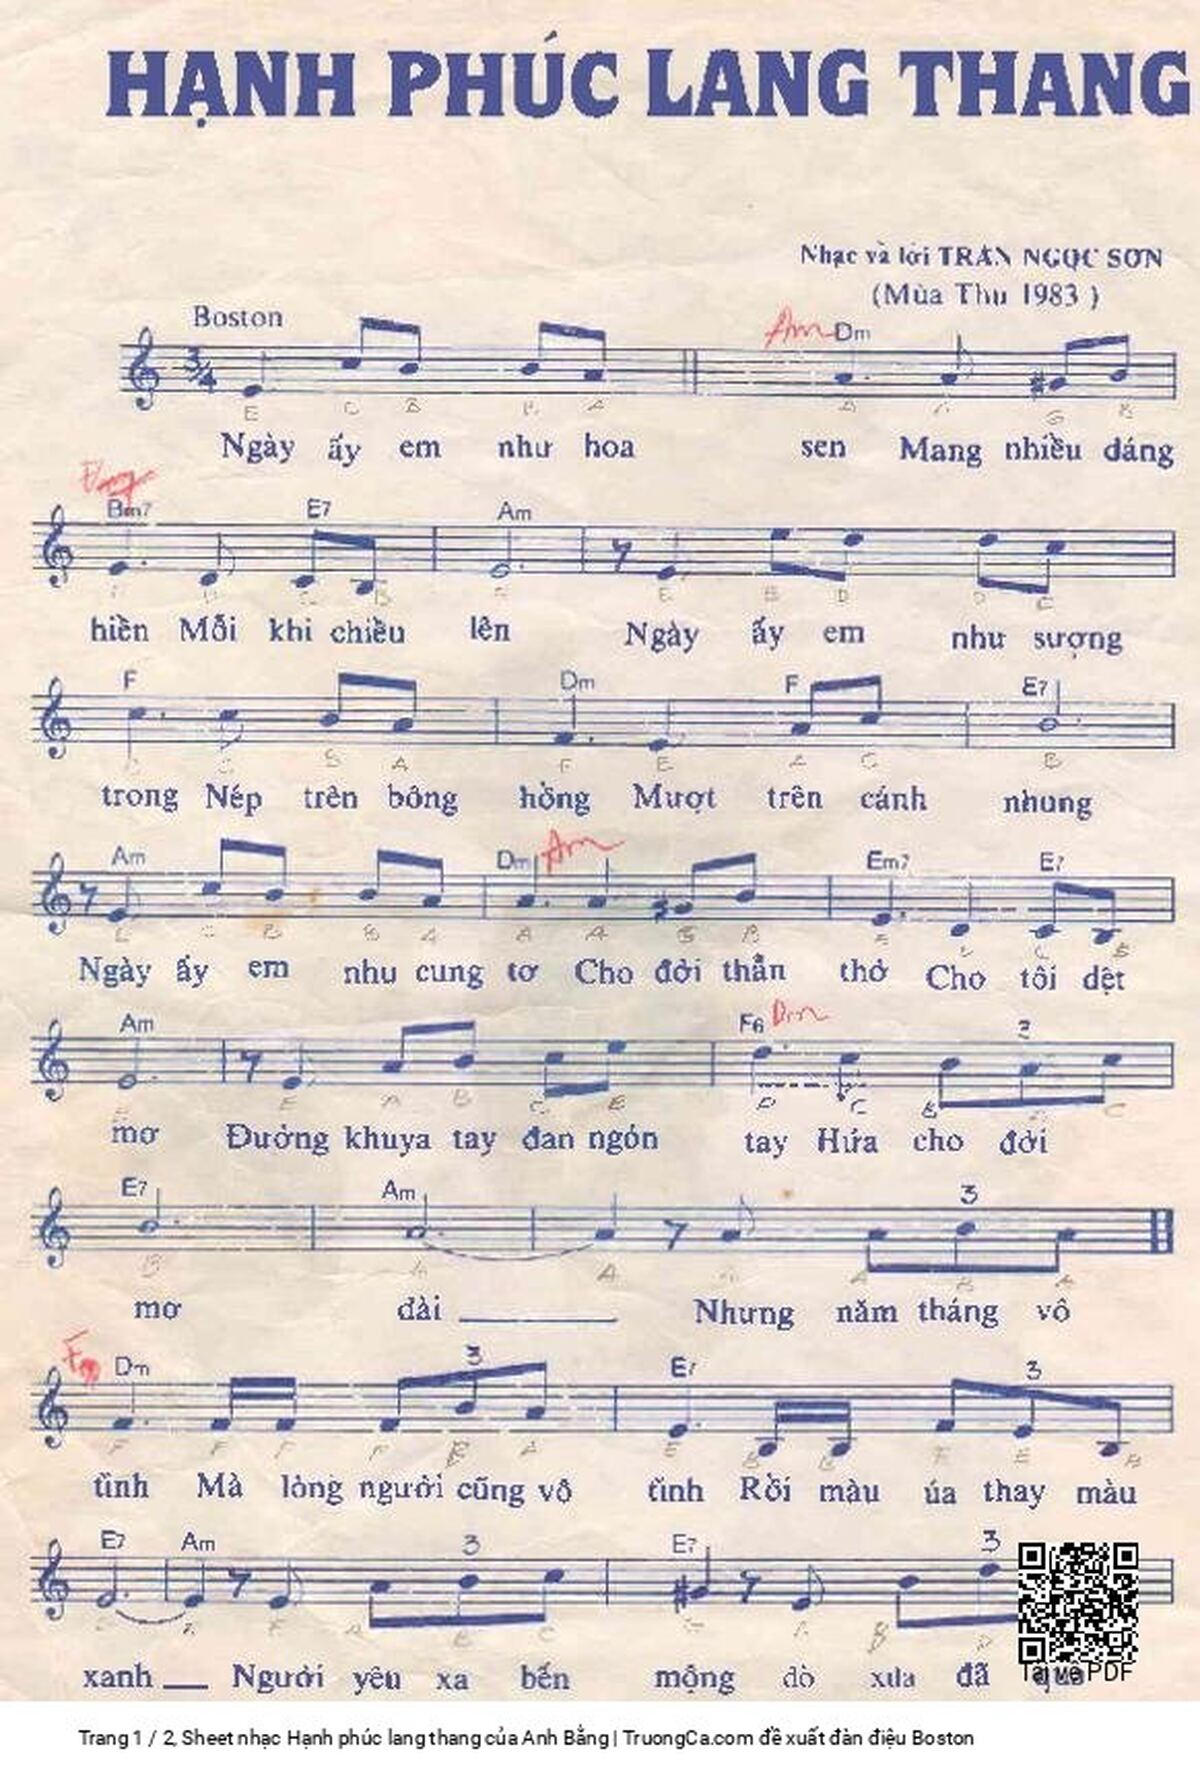 HẠNH PHÚC LANG THANG
Nhạc và lời TRẦN NGỌC SƠN
(Mùa Thu 1983 )
Boston
Am Dm
3/4
E C B B A A A G B
Ngày ấy em như hoa sen Mang nhiều dáng
Bm7 E7 Am
hiền Mỗi khi chiều lên Ngày ấy em như sượng
F Dm F E7
trong Nép trên bông hồng Mượt trên cánh nhung
Am Dm Am Em7 E7
Ngày ấy em nhu cung tơ Cho đời thẩn thơ Cho tôi dệt
Am F6 Dm 2
mơ Đường khuya tay đan ngón tay Hứa cho đời
E7 Am 3
mơ dài Nhưng năm tháng vô
Dm 3 E7 3
tình Mà lòng người cũng vô tình Rồi màu úa thay màu
E7 Am 3 E7 3
xanh Người yêu xa bến mộng đò xưa đã
Tải về PDF
Trang 1 / 2, Sheet nhạc Hạnh phúc lang thang của Anh Bằng | TruongCa.com đề xuất đàn điệu Boston